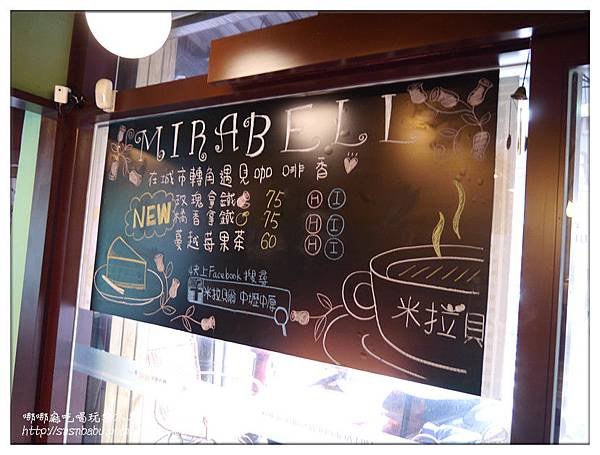 MIRABELL
在城市轉角遇見咖啡香
NEW
玫瑰拿鐵 75 H I
橘香拿鐵 75 H I
蔓越莓果茶 60 H I
快上Facebook搜尋
米拉貝爾 中壢中原
米拉貝
嘟嘟麻吃喝玩